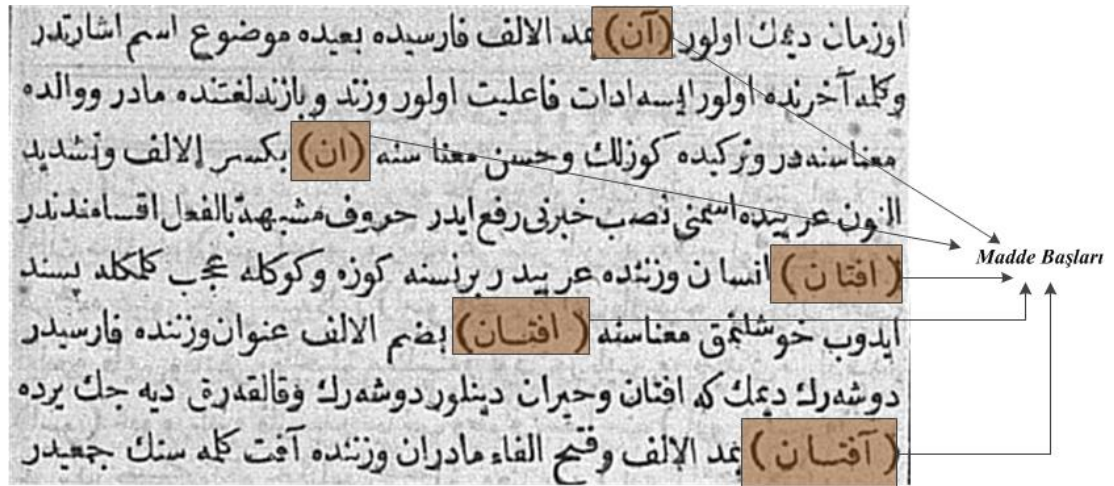 اوزمان ديمك اولور (آن) بمد الالف فارسيده بعيده موضوع اسم اشارتدر
وكلمه آخرنده اولور ايسه ادات فاعليت اولور وزند وبازند لغتنده مادر ووالده
معناسنه در وتركيده كوزلك وحسن معنا سنه (ان) بكسر الالف وتشديد
النون عربيده اسمنى نصب خبرنى رفع ايدر حروف مشبهة بالفعل اقسامندندر
(افتان) انسان وزننده عربيدر برنسنه كوزه وكوكله عجب كلمكله پسند
ايدوب خوشلنمق معناسنه (افتــان) بضم الالف عنوان وزننده فارسيدر
دوشه رك ديمك كه افتان وحيران دينلور دوشه رك وقالقه رق ديه جك يرده
(آفتــان) بمد الالف وفتح الفاء مادران وزننده آفت كلمه سنك جمعيدر
Madde Başları